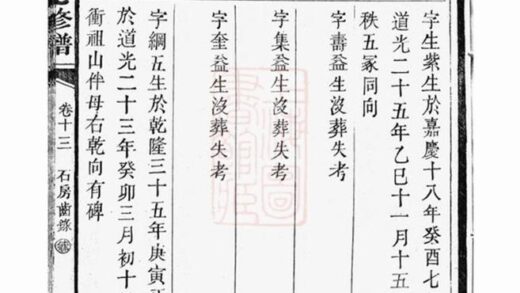 字生紫生於嘉慶十八年癸酉七
道光二十五年乙巳十一月十五
秩五冢同向
字壽益生沒葬失考
字集益生沒葬失考
字奎益生沒葬失考
字綱五生於乾隆三十五年庚寅
於道光二十三年癸卯三月初十
衝祖山伴母右乾向有碑
修譜
卷十三
石房齒錄